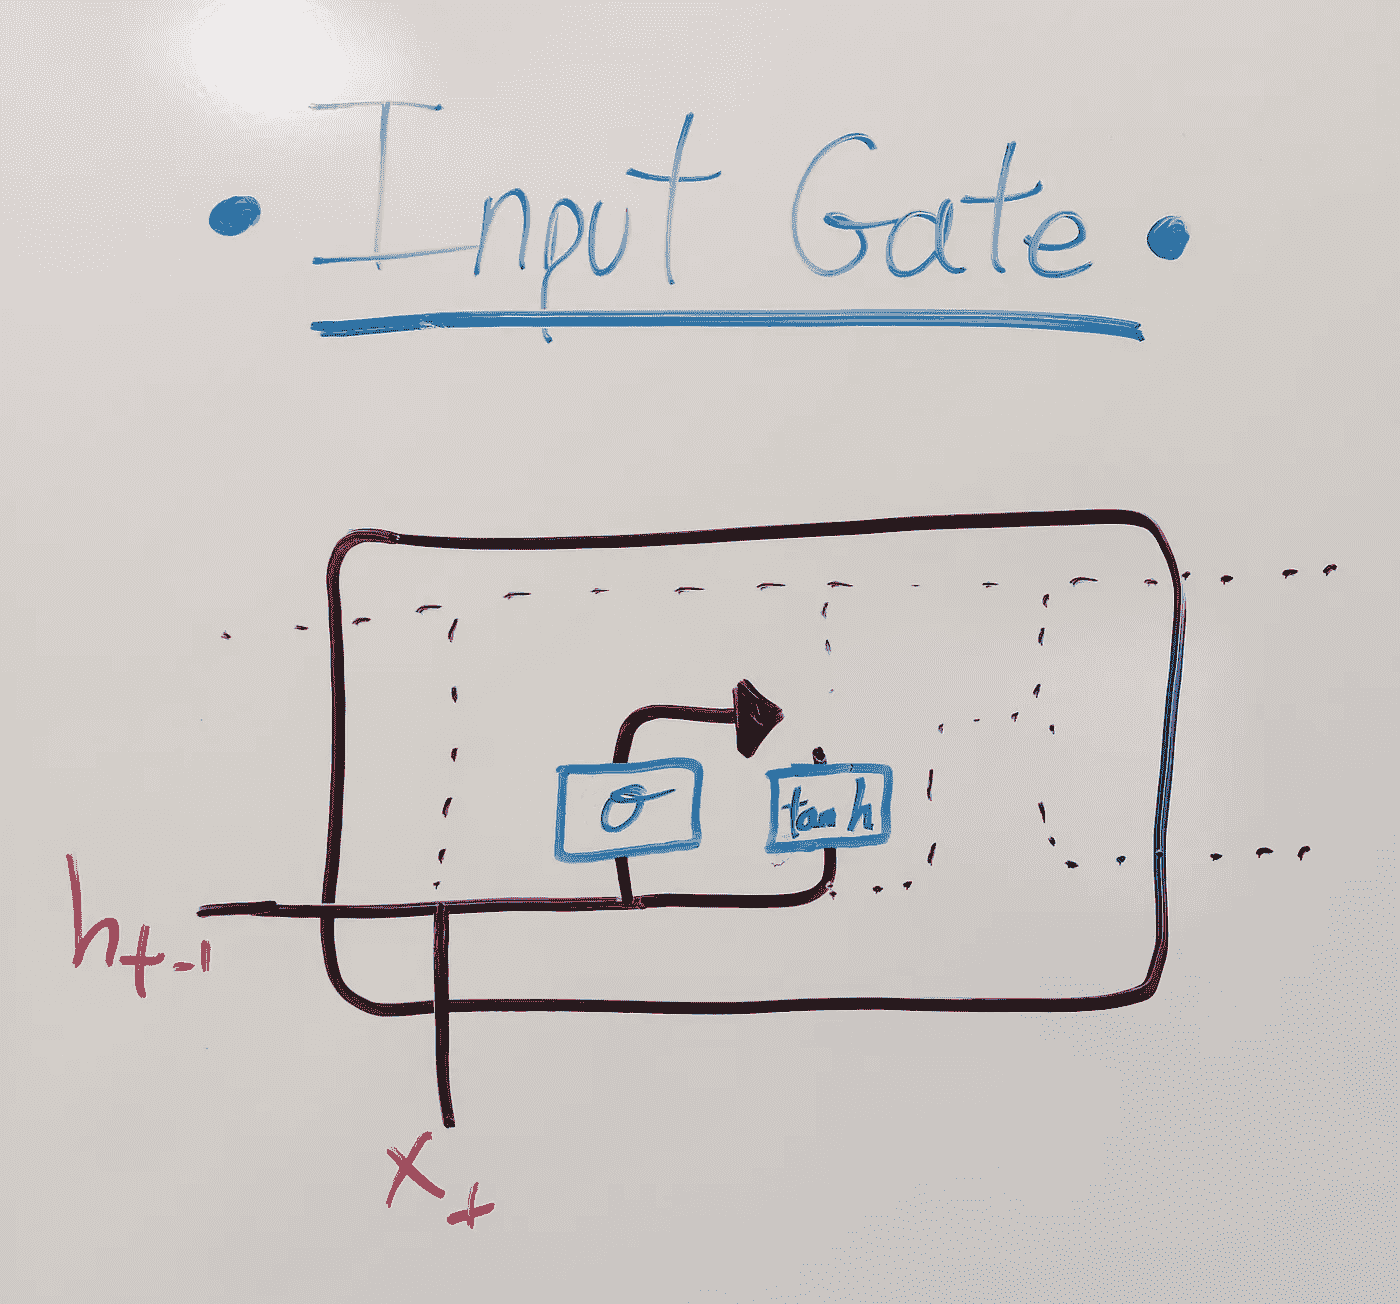 • Input Gate •
σ
tanh
h_{t-1}
x_t